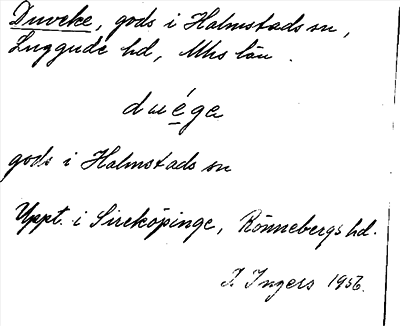 Duveke, gods i Halmstads sn,
Luggude hd, Mhs län.
duéga
gods i Halmstads sn
Uppt. i Sireköpinge, Rönnebergs hd.
I. Ingers 1956.